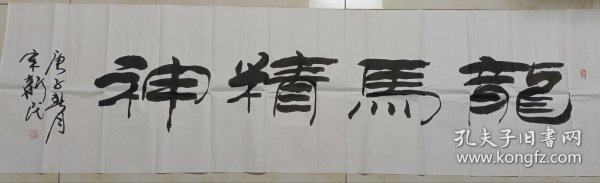 龍馬精神
庚子秋月
宋新民
孔夫子旧书网
www.kongfz.com